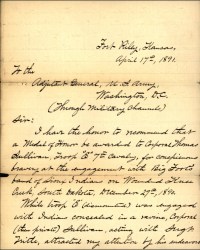 Fort Riley, Kansas,
April 17th, 1891.
To the
Adjutant General, U.S. Army,
Washington, D.C.
(Through Military Channels)
Sir:
I have the honor to recommend that
a Medal of Honor be awarded to Corporal Thomas
Sullivan, Troop E 7th Cavalry, for conspicuous
bravery at the engagement with Big Foot's
band of Sioux Indians on Wounded Knee
Creek, South Dakota, December 29th, 1890.
While troop E (dismounted) was engaged
with Indians concealed in a ravine, Corporal
(then private) Sullivan, acting with Sergt.
attracted my attention by his coolness